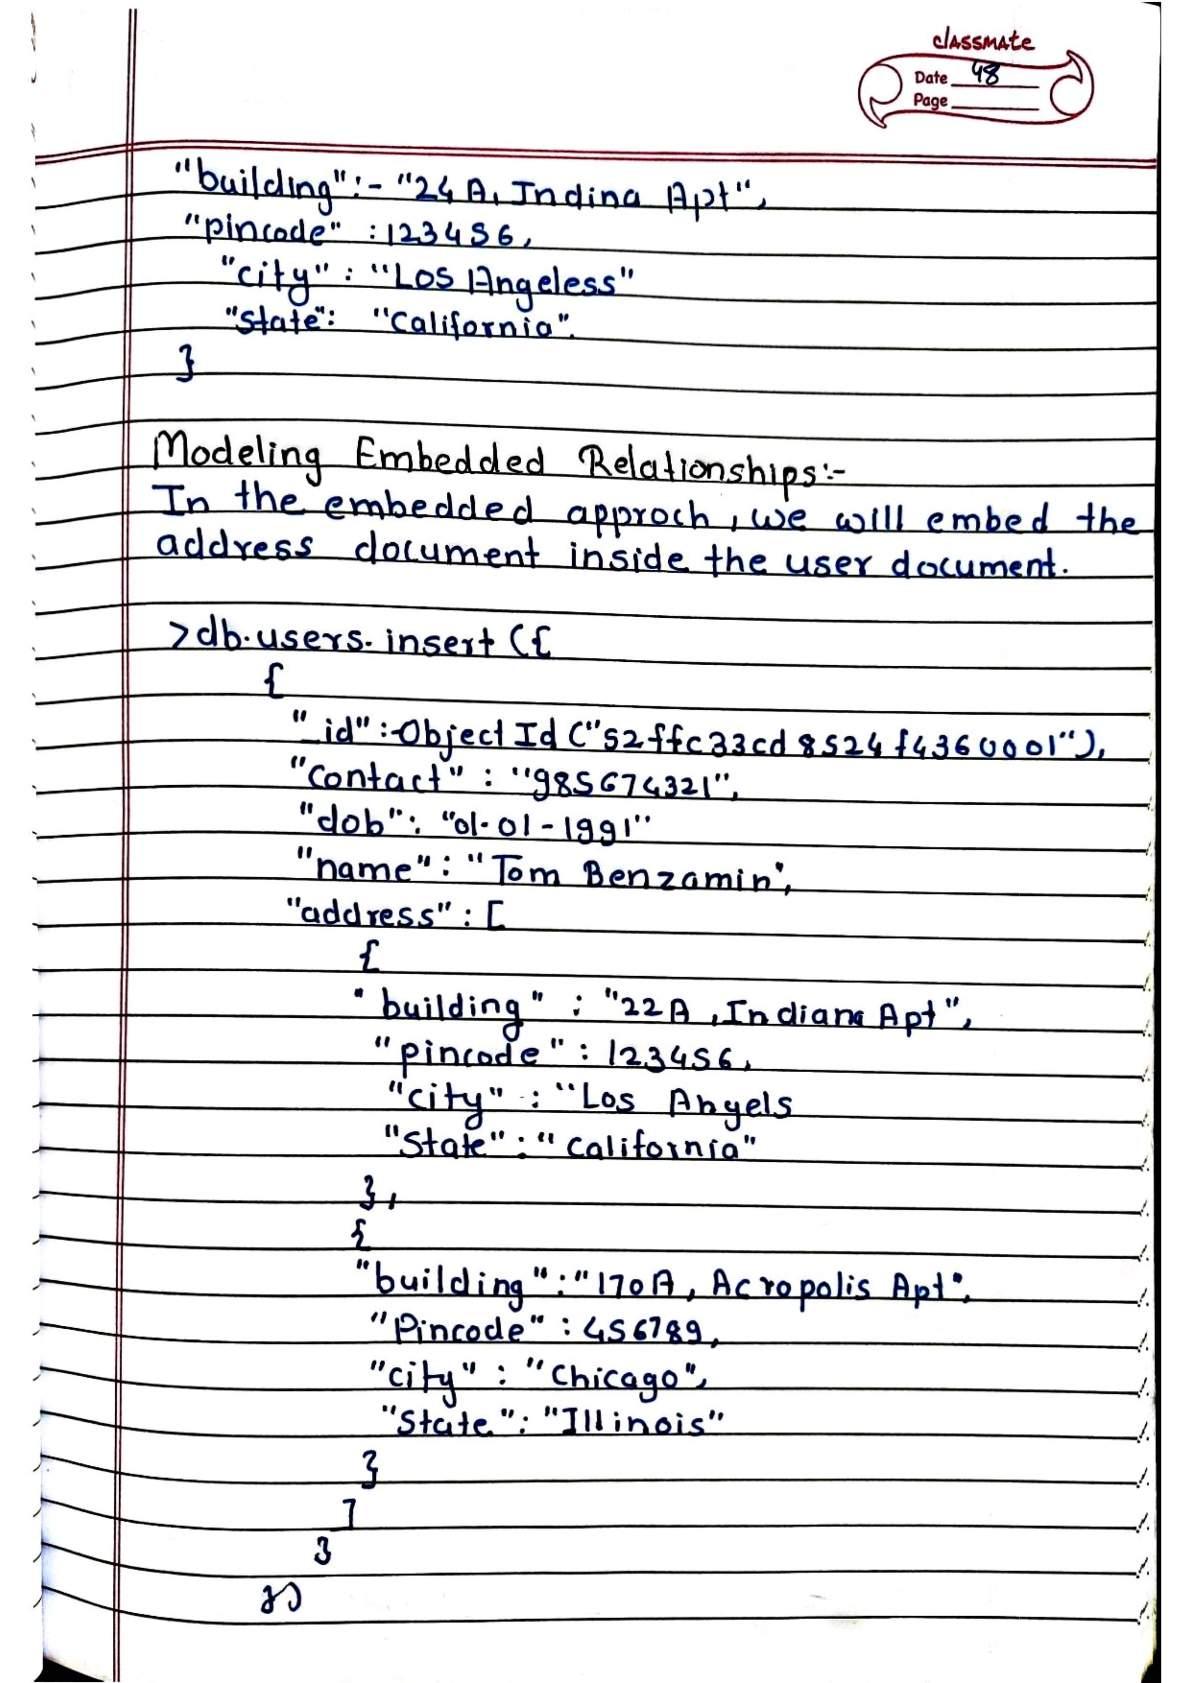 classmate
Date 48
Page
"building":- "24 A, Indina Apt",
"pincode" : 123456,
"city" : "Los Angeless"
"State": "California".
}
Modeling Embedded Relationships:-
In the embedded approch, we will embed the
address document inside the user document.
>db.users.insert({
{
"_id":-Object Id ("52ffc33cd8524f4360001"),
"contact" : "985674321",
"dob": "01-01-1991"
"name" : "Tom Benzamin",
"address" : [
{
"building" : "22A, Indiana Apt",
"pincode" : 123456,
"city" : "Los Angels
"State" : "California"
},
{
"building" : "170A, Acropolis Apt",
"Pincode" : 456789,
"city" : "Chicago",
"State" : "Illinois"
}
]
}
})